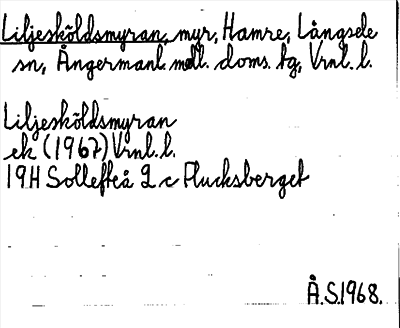 Liljesköldsmyran, myr, Hamre, Långsele
sn, Ångermanl. mell. doms. tg, Vrnl. l.
Liljesköldsmyran
ek (1967) Vrnl. l.
19H Sollefteå 2 c Plucksberget
Å.S.1968.